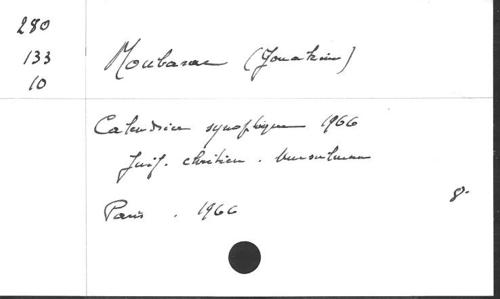 280
133
10
Moubarac (Youakim)
Calendrier synoptique 1966
Juif. chrétien. Musulman
Paris . 1966
8.